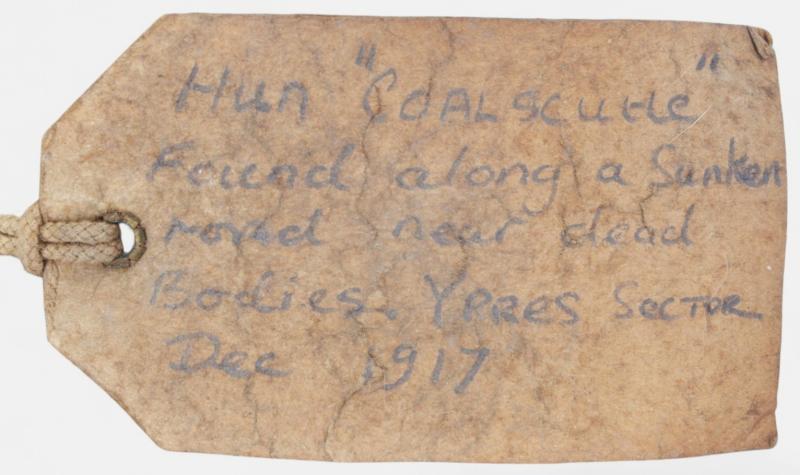 Hun "COALSCUttle"
Found along a Sunken
road near dead
Bodies. YPRES SECTOR
Dec 1917